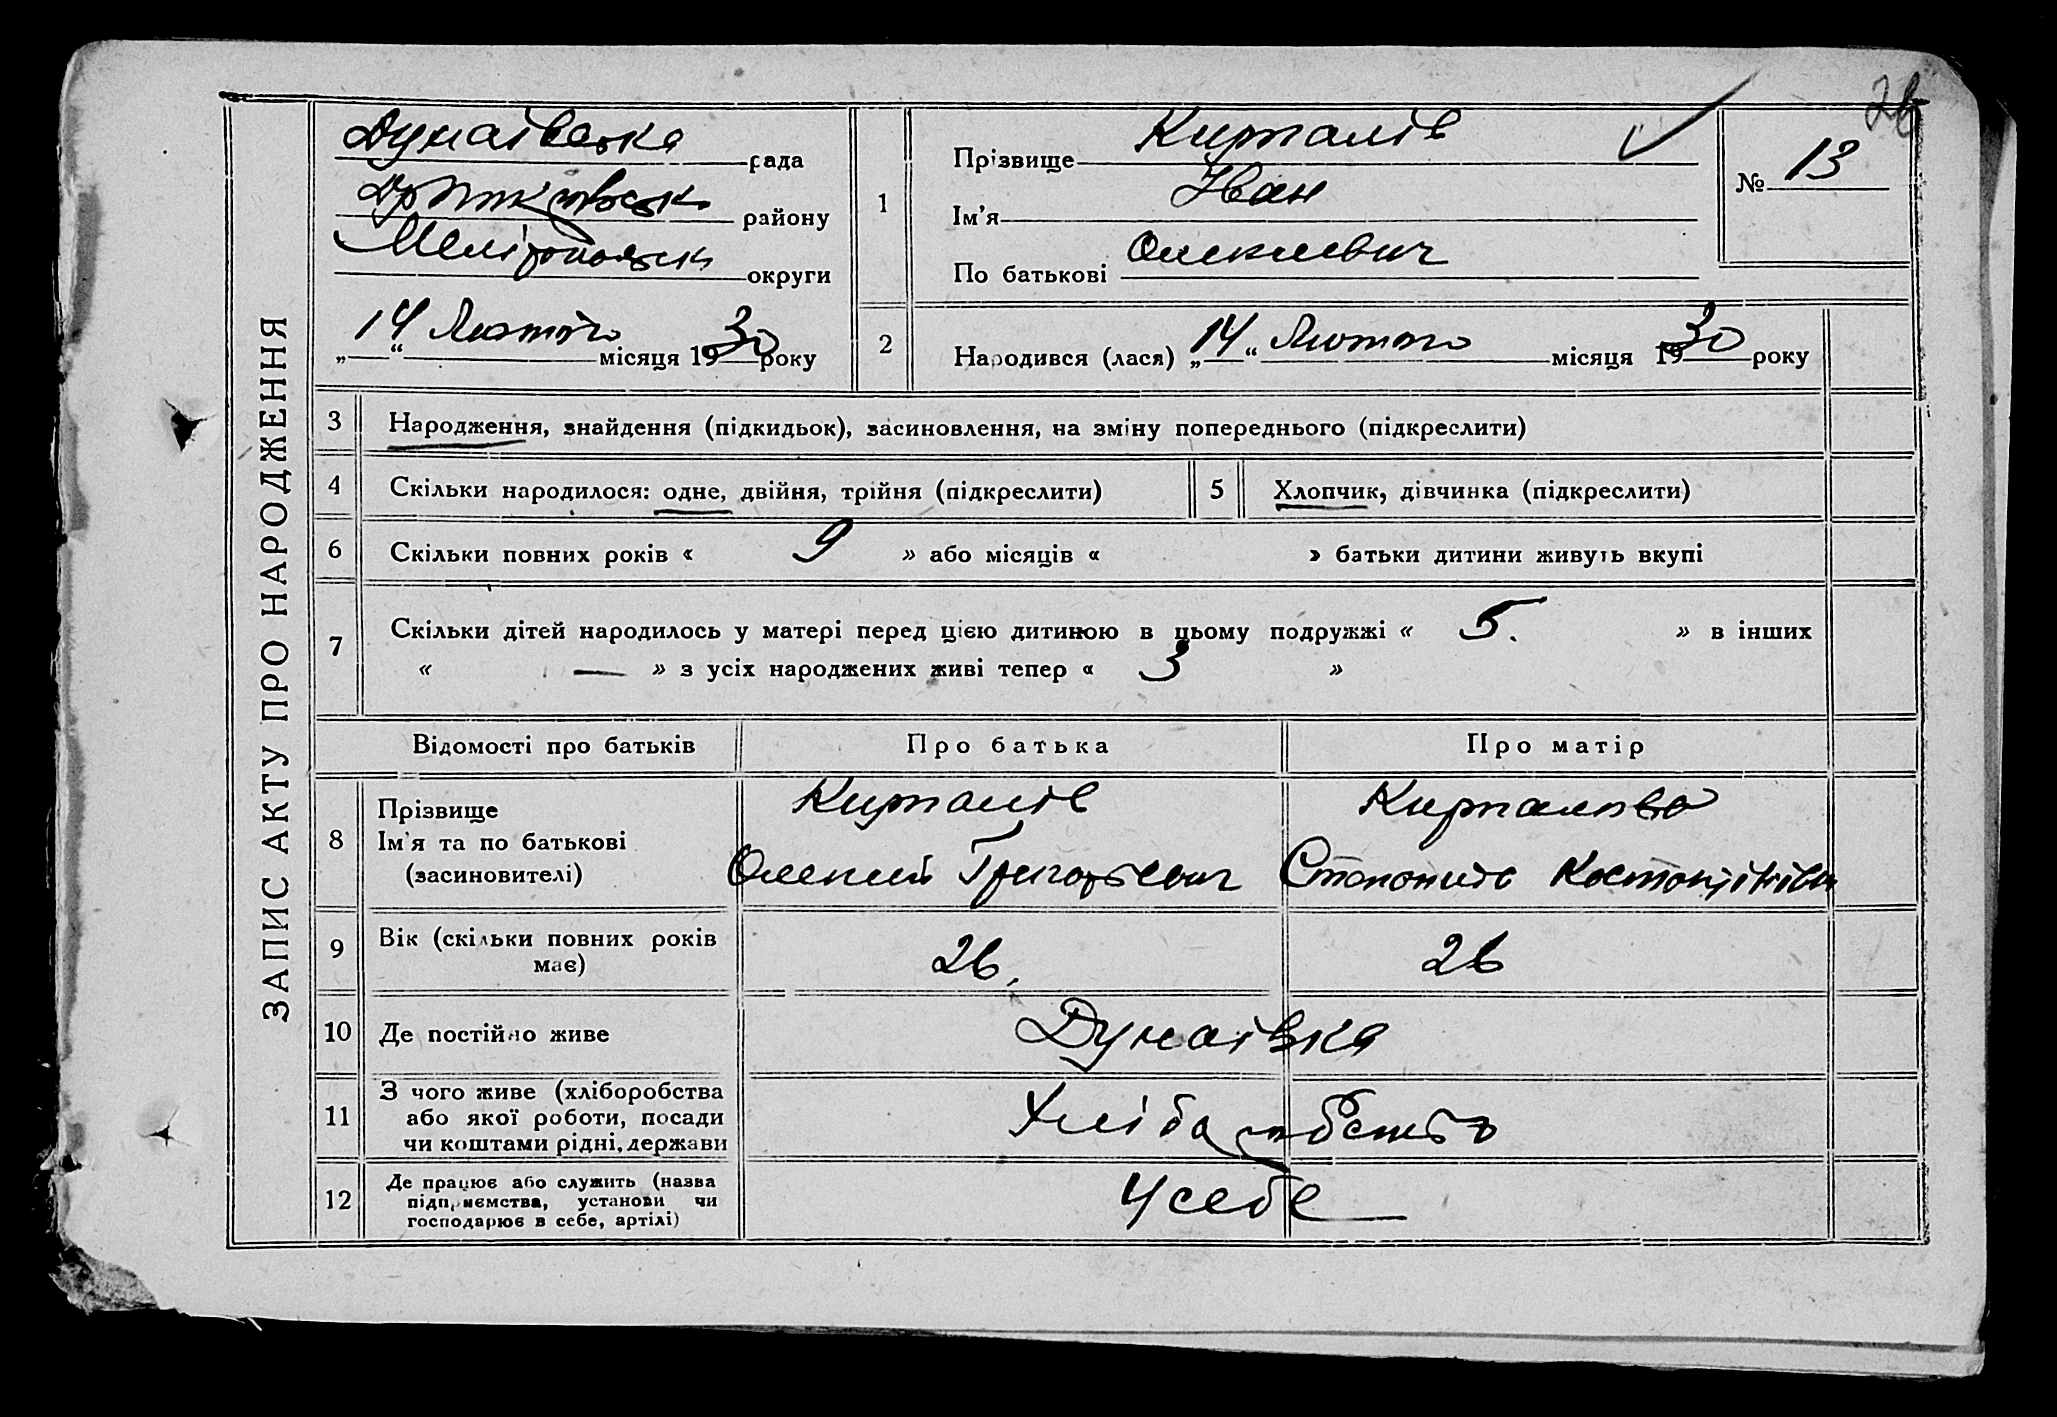 26
ЗАПИС АКТУ ПРО НАРОДЖЕННЯ
Дунаївська рада
району
округи
„14“ Лютого місяця 1930 року
1
Прізвище Кирпалів
Ім'я Іван
По батькові Олексієвич
№ 13
2
Народився (лася) „14“ Лютого місяця 1930 року
3 Народження, знайдення (підкидьок), засиновлення, на зміну попереднього (підкреслити)
4 Скільки народилося: одне, двійня, трійня (підкреслити)
5 Хлопчик, дівчинка (підкреслити)
6 Скільки повних років « 9 » або місяців « » батьки дитини живуть вкупі
7 Скільки дітей народилось у матері перед цією дитиною в цьому подружжі « 5. » в інших
« — » з усіх народжених живі тепер « 3 »
Відомості про батьків Про батька Про матір
8
Прізвище
Ім'я та по батькові
(засновителі)
Кирпалів
Олексій Григорієвич
Кирпалова
9 Вік (скільки повних років
має)
26.
26
10 Де постійно живе Дунаївка
11 З чого живе (хліборобства
або якої роботи, посади
чи коштами рідні, держави
Хліборобство
12 Де працює або служить (назва
підприємства, установи чи
господарює в себе, артілі)
У себе